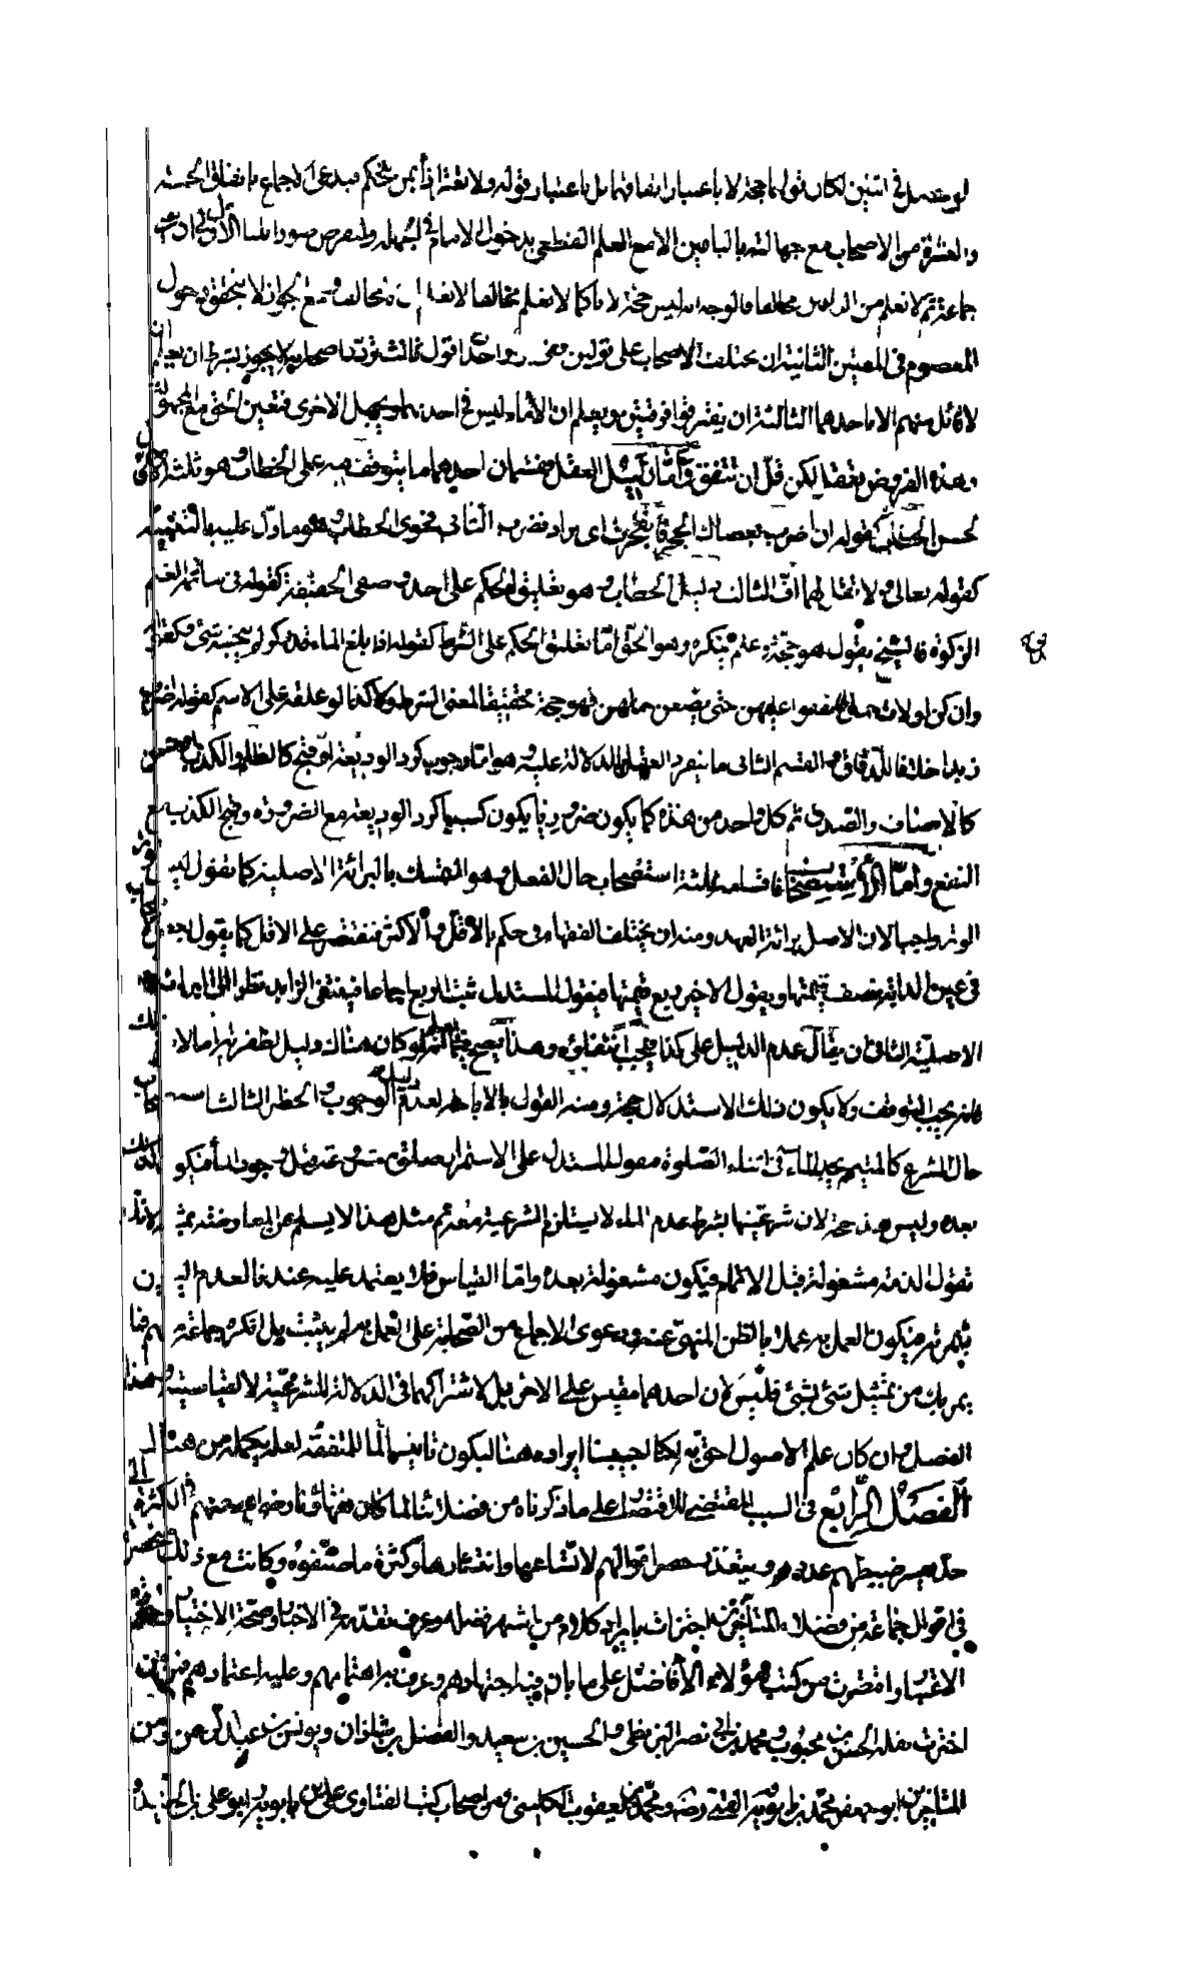 لو حصل في اثنين لكان قولهما حجة لا باعتبار اتفاقهما بل باعتبار قوله ولا تغتر إذا بمن يتحكم فيدعى الاجماع باتفاق الخمسة
والعشرة من الاصحاب مع جهالة الباقين الا مع العلم القطعي بدخول الامام في الجملة ولنفرض صورا ثلثا الأولى
جماعة ثم لا نعلم من الباقين مخالفا فالوجه انه ليس حجة لانا كما لا نعلم مخالفا لا نعلم ان لا مخالف ومع الجواز لا يتحقق دخول
المعصوم في المفتين الثانية ان يختلف الاصحاب على قولين
لا قائل منهم الا باحدهما الثالثة ان يفترقوا فرقتين ويعلم ان الامام ليس في احديهما ويجهل الاخرى فتعين الحق مع المجهولة
وهذه الفروض تعقل لكن قل ان تتفق وأما دليل العقل فقسمان احدهما ما يتوقف فيه على الخطاب وهو ثلثة
لحن الخطاب كقوله ان اضرب بعصاك الحجر فانفجرت اى اراد فضرب الثاني فحوى الخطاب وهو ما دل عليه بالتنبيه
كقوله تعالى ولا تقل لهما اف الثالث دليل الخطاب وهو تعليق الحكم على احد وصفى الحقيقة كقوله في سائمة الغنم
الزكوة فالشيخ يقول هو حجة وعلم الهدى ينكره وهو الحق اما تعليق الحكم على الشرط كقوله اذا بلغ الماء قدر كر لم ينجسه شئ وكقوله
وان كن اولات حمل فانفقوا عليهن حتى يضعن حملهن فهو حجة تحقيقا لمعنى الشرط ولا كذا لو علقه على الاسم كقوله اضرب
زيدا خلافا للدقاق و القسم الثاني ما ينفرد العقل بالدلالة عليه وهو اما وجوب كرد الوديعة او قبح كالظلم والكذب او حسن
كالانصاف والصدق ثم كل واحد من هذه كما يكون ضروريا يكون كسبيا كرد الوديعة مع الضرورة وقبح الكذب مع
النفع واما الاستصحاب فاقسامه ثلثة استصحاب حال الفعل وهو التمسك بالبرائة الاصلية كما تقول ليس
الوتر واجبا لان الاصل برائة العهدة ومنه ان يختلف الفقهاء في حكم بالاقل والاكثر فنقتصر على الاقل كما يقول بعض
في عين الدابة نصف قيمتها ويقول الاخر ربع قيمتها فيقول المستدل ثبت الربع اجماعا فينتفى الزايد نظرا الى البراءة
الاصلية الثاني ان يقال عدم الدليل على كذا فيجب انتفاؤه وهذا يصح فيما يعلم انه لو كان هناك دليل لظفر به اما لا
فانه يجب التوقف ولا يكون ذلك الاستدلال حجة ومنه القول بالاباحة لعدم دليل الوجوب والحظر الثالث
حال الشرع كالمتيمم يجد الماء في اثناء الصلوة فيقول المستدل على الاستمرار صلوته مشروعة قبل وجود الماء فيكون كذلك
بعده وليس هذا حجة لان شرعيتها بشرط عدم الماء لا يستلزم الشرعية معه ثم مثل هذا لا يسلم عن المعارضة بمثله لانك
تقول الذمة مشغولة قبل الاتمام فيكون مشغولة بعده واما القياس فلا يعتمد عليه عندنا لعدم اليقين
بثمرته فيكون العمل به عملا بالظن المنهى عنه ودعوى الاجماع من الصحابة على العمل به لم يثبت بل انكره جماعة منهم فما
يمر بك من تمثيل شئ بشئ فليس لان احدهما مقيس على الاخر بل لاشتراكهما في الدلالة الشرعية لا القياسية وهذا
الفصل وان كان علم الاصول احق به لكنا احببنا ايراده هنا ليكون تأنيسا للمتفقه لعله يكمله من هناك
الفصل الرابع في السبب المقتضى للاقتصار على ما ذكرناه من فضلائنا لما كان فقهاؤنا رضي الله عنهم في الكثرة الى
حد يعسر ضبط عددهم ويتعذر حصر اقوالهم لاتساعها وانتشارها وكثرة ما صنفوه وكانت مع ذلك منحصرة
في اقوال جماعة من فضلاء المتأخرين اجتزأت بايراد كلام من اشتهر فضله وعرف تقدمه في الاخبار وصحة الاختيار وجودة
الاعتبار واقتصرت من كتب هؤلاء الأفاضل على ما بان فيه اجتهادهم وعرف به اهتمامهم وعليه اعتمادهم فممن
اخترت نقله الحسن بن محبوب ومحمد بن ابي نصر البزنطى والحسين بن سعيد والفضل بن شاذان ويونس بن عبد الرحمن ومن
المتأخرين ابو جعفر محمد بن بابويه القمي رضه ومحمد بن يعقوب الكلينى ومن اصحاب كتب الفتاوى على بن بابويه وابو على بن الجنيد